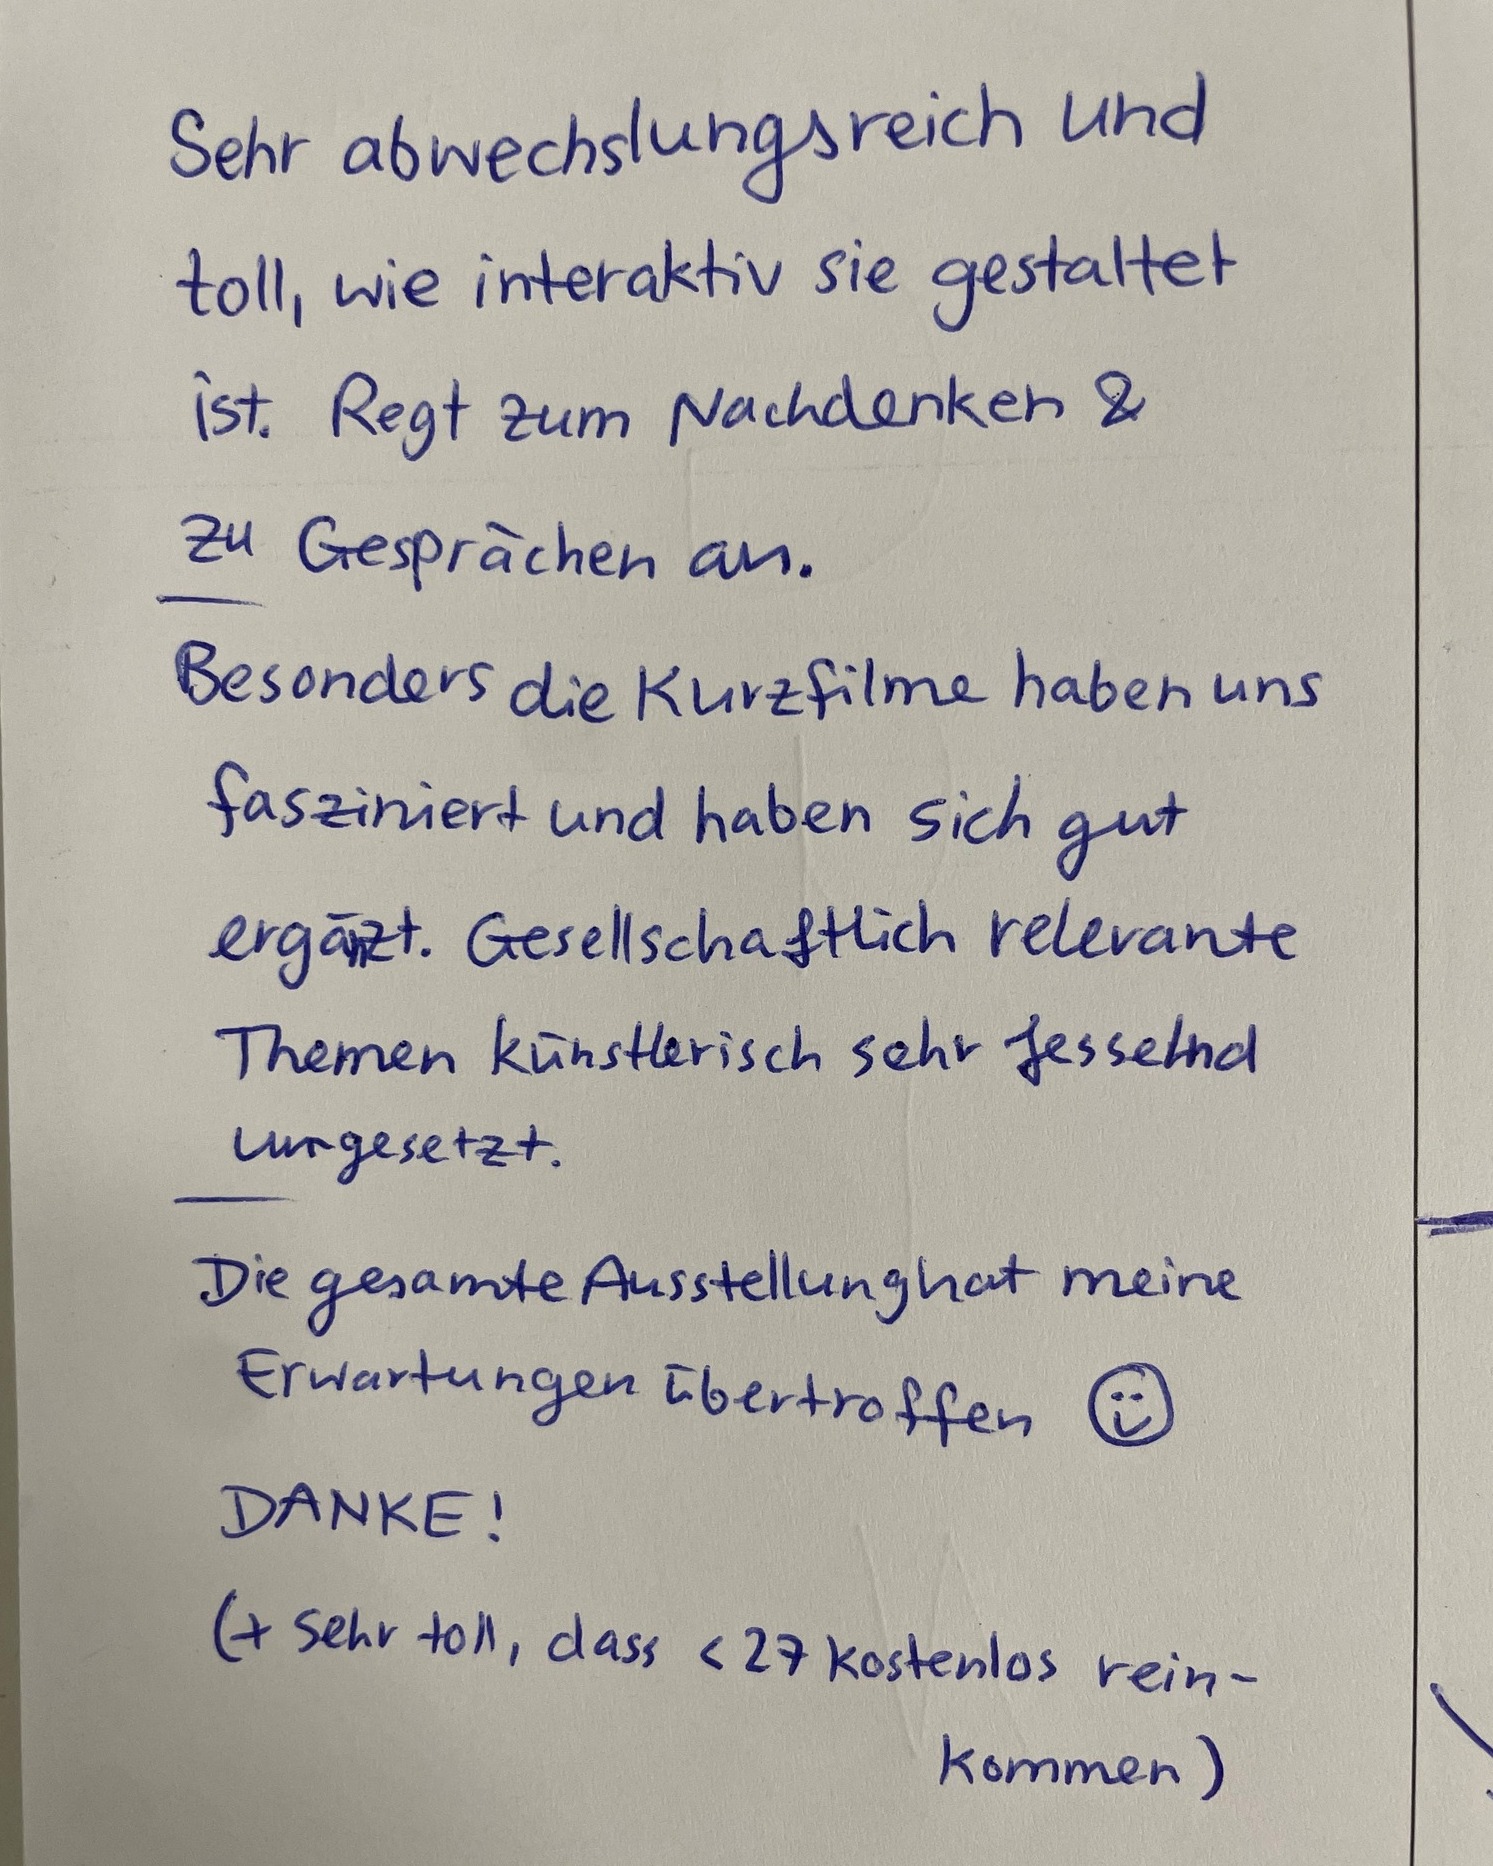 Sehr abwechslungsreich und
toll, wie interaktiv sie gestaltet
ist. Regt zum Nachdenken &
zu Gesprächen an.
Besonders die Kurzfilme haben uns
fasziniert und haben sich gut
ergänzt. Gesellschaftlich relevante
Themen künstlerisch sehr fesselnd
umgesetzt.
Die gesamte Ausstellung hat meine
Erwartungen übertroffen ☺
DANKE!
(+ Sehr toll, dass < 27 kostenlos rein-
kommen)